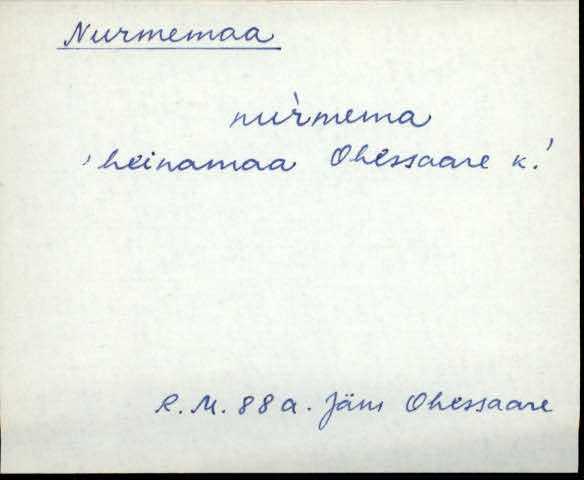 Nurmemaa
nur̀mema
'heinamaa Ohessaare k.'
R.M. 88 a. Jäm Ohessaare